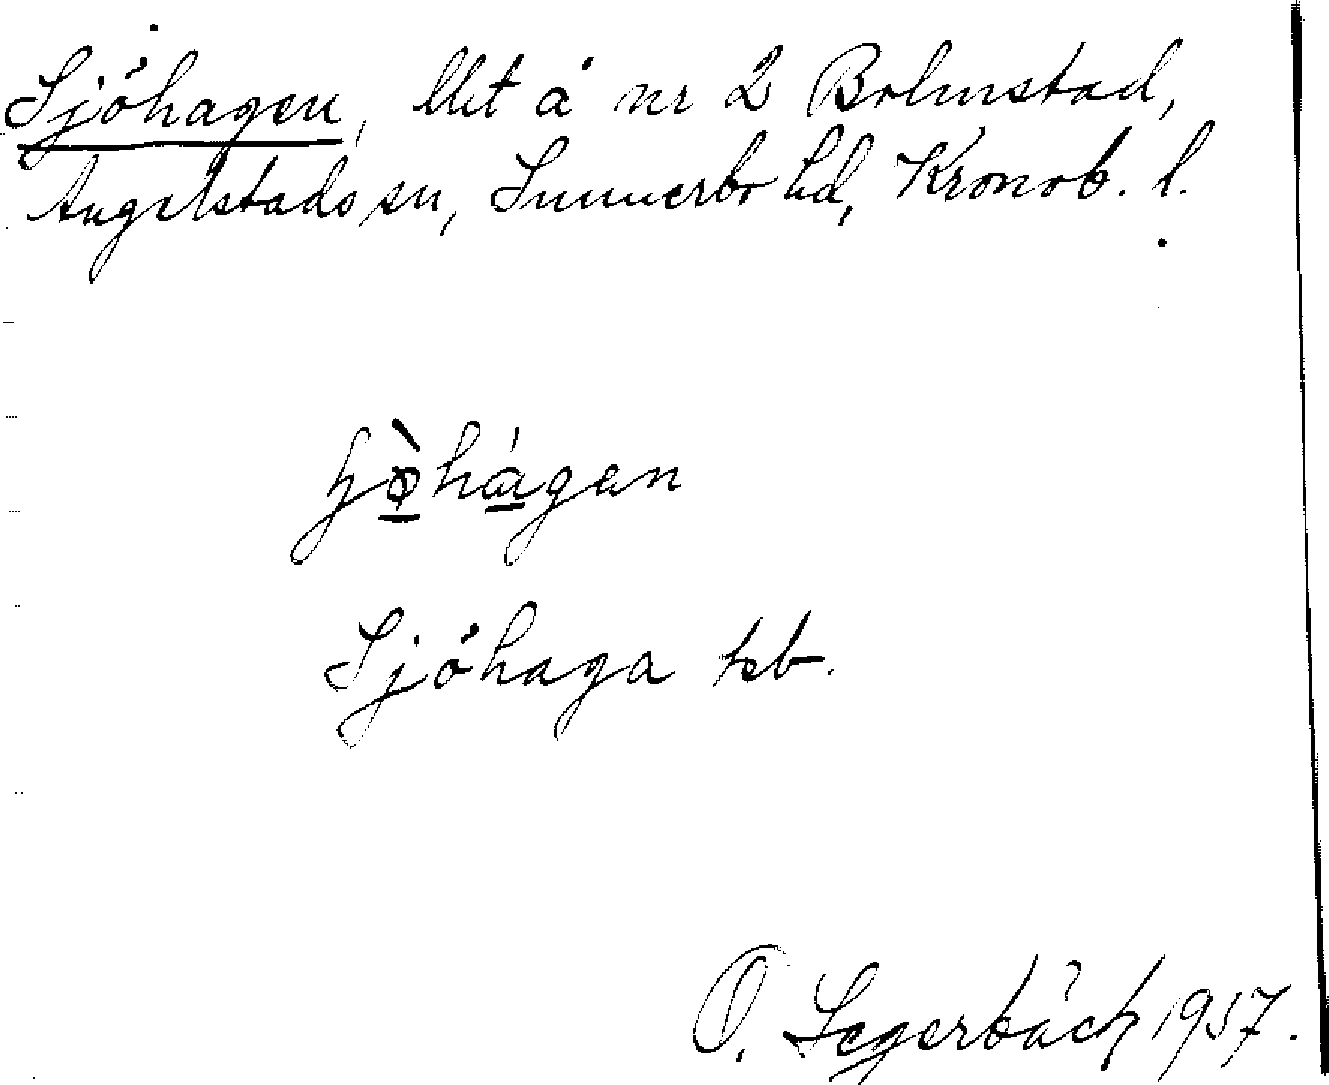 Sjöhagen, llet å nr 2 Bolmstad,
Angelstads sn, Sunnerbo hd, Kronob. l.
Sjöhaga kb.
O. Segerbäck 1957.